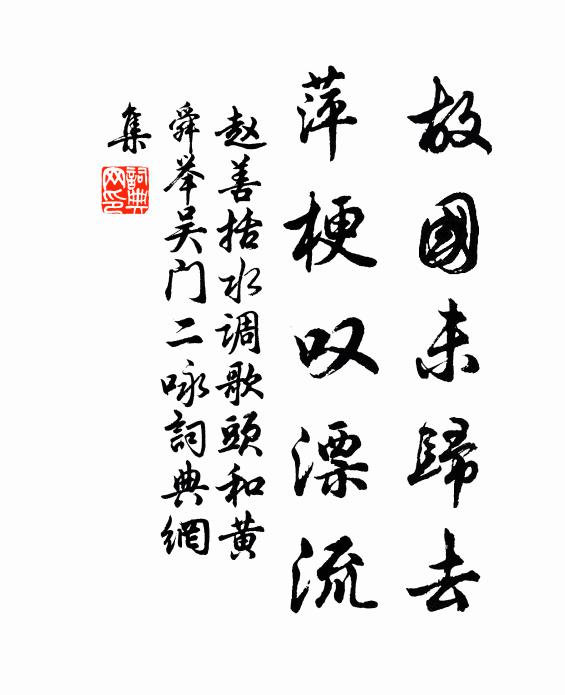 故國未歸去
萍梗叹漂流
赵善括水调歌头和黄
舜举吴门二咏詞典網
集
詞典網印